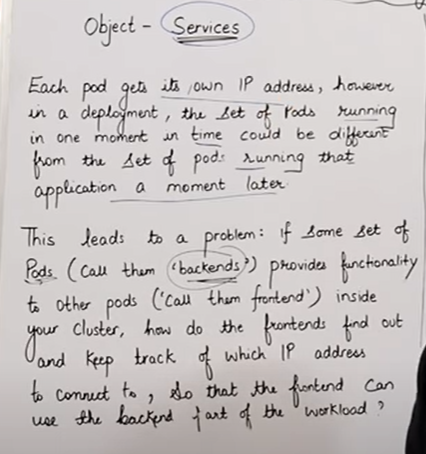 Object - Services
Each pod gets its own IP address, however
in a deployment, the set of Pods running
in one moment in time could be different
from the set of pods running that
application a moment later.
This leads to a problem: if some set of
Pods (call them 'backends') provides functionality
to other pods ('call them frontend') inside
your cluster, how do the frontends find out
and keep track of which IP address
to connect to, so that the frontend can
use the backend part of the workload?